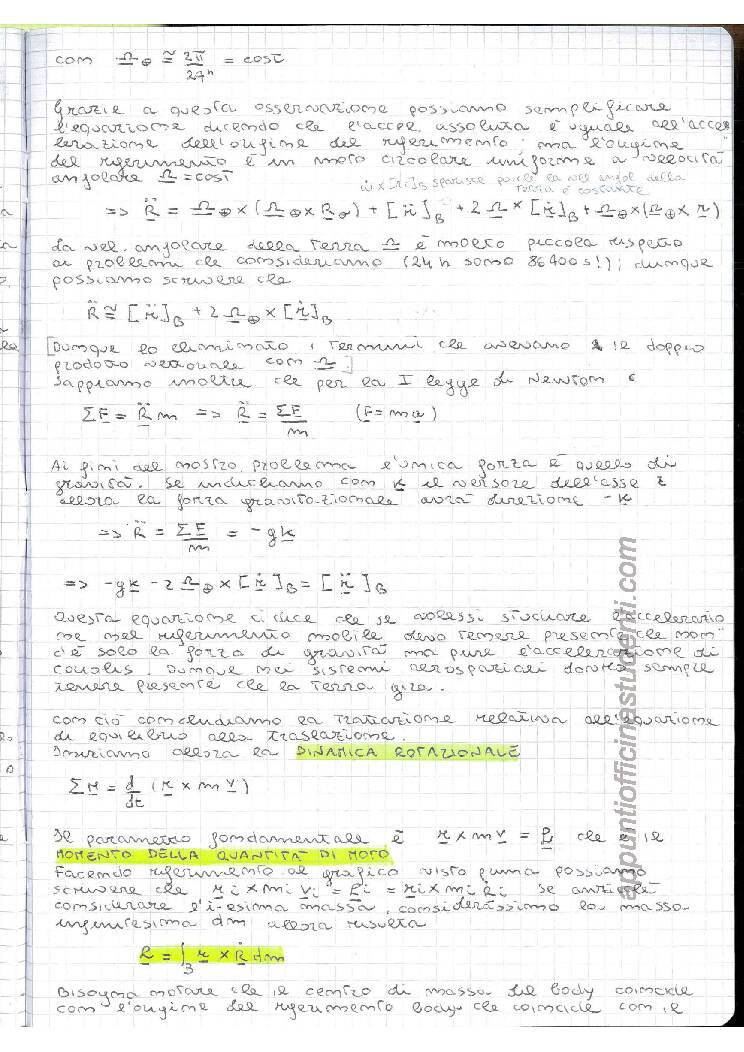 com Ω⊕ ≅ 2π/24ʰ = cost
Grazie a questa osservazione possiamo semplificare
l'equazione dicendo che l'accel. assoluta è uguale all'acce
lerazione dell'origine del riferimento; ma l'origine
del riferimento è in moto circolare uniforme a velocità
angolare Ω = cost
ω̇ × [r]B sparisce perché la vel angol della
Terra è costante
=> R̈ = Ω⊕ × (Ω⊕ × R) + [r̈]B + 2Ω × [ṙ]B + Ω⊕ × (Ω⊕ × r)
La vel. angolare della Terra Ω è molto piccola rispetto
ai problemi che consideriamo (24h sono 86400s!); dunque
possiamo scrivere che
R̈ ≅ [r̈]B + 2Ω⊕ × [ṙ]B
[Dunque ho eliminato i termini che avevano il doppio
prodotto vettoriale con Ω.]
Sappiamo inoltre che per la I legge di Newton è
ΣF = R̈ m => R̈ = ΣF/m (F = ma)
Ai fini del nostro problema l'unica forza è quella di
gravità. Se indichiamo con k il versore dell'asse z
allora la forza gravitazionale avrà direzione -k
=> R̈ = ΣF/m = -gk
=> -gk - 2Ω⊕ × [ṙ]B = [r̈]B
Questa equazione ci dice che se volessi studiare l'accelerazio
ne nel riferimento mobile devo tenere presente che non
c'è solo la forza di gravità ma pure l'accelerazione di
Coriolis. Dunque nei sistemi aerospaziali dovrò sempre
tenere presente che la Terra gira.
Con ciò concludiamo la trattazione relativa all'equazione
di equilibrio alla traslazione.
Iniziamo allora la DINAMICA ROTAZIONALE
ΣM = d/dt (r × m v)
Il parametro fondamentale è r × m v = h che è il
MOMENTO DELLA QUANTITÀ DI MOTO
Facendo riferimento al grafico visto prima possiamo
scrivere che ri × mi vi = hi = ri × mi Ṙi Se anziché
considerare l'i-esima massa, considerassimo la massa
infinitesima dm allora risulta
h = ∫B r × Ṙ dm
Bisogna notare che il centro di massa del body coincide
con l'origine del riferimento body che coincide con il
appuntiofficinastudenti.com